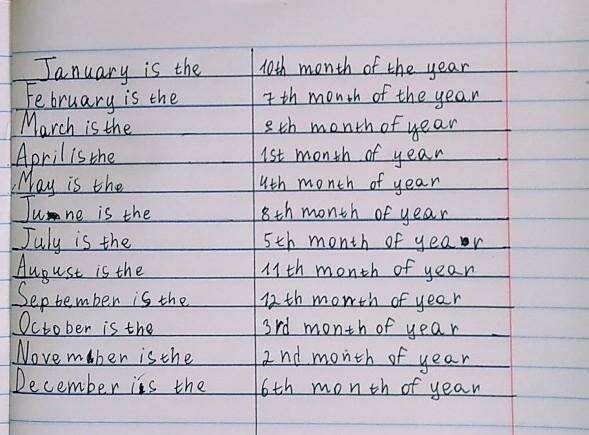 January is the 10th month of the year
February is the 7th month of the year
March is the 9th month of year
April is the 1st month of year
May is the 4th month of year
June is the 8th month of year
July is the 5th month of year
August is the 11th month of year
September is the 12th month of year
October is the 3rd month of year
November is the 2nd month of year
December is the 6th month of year